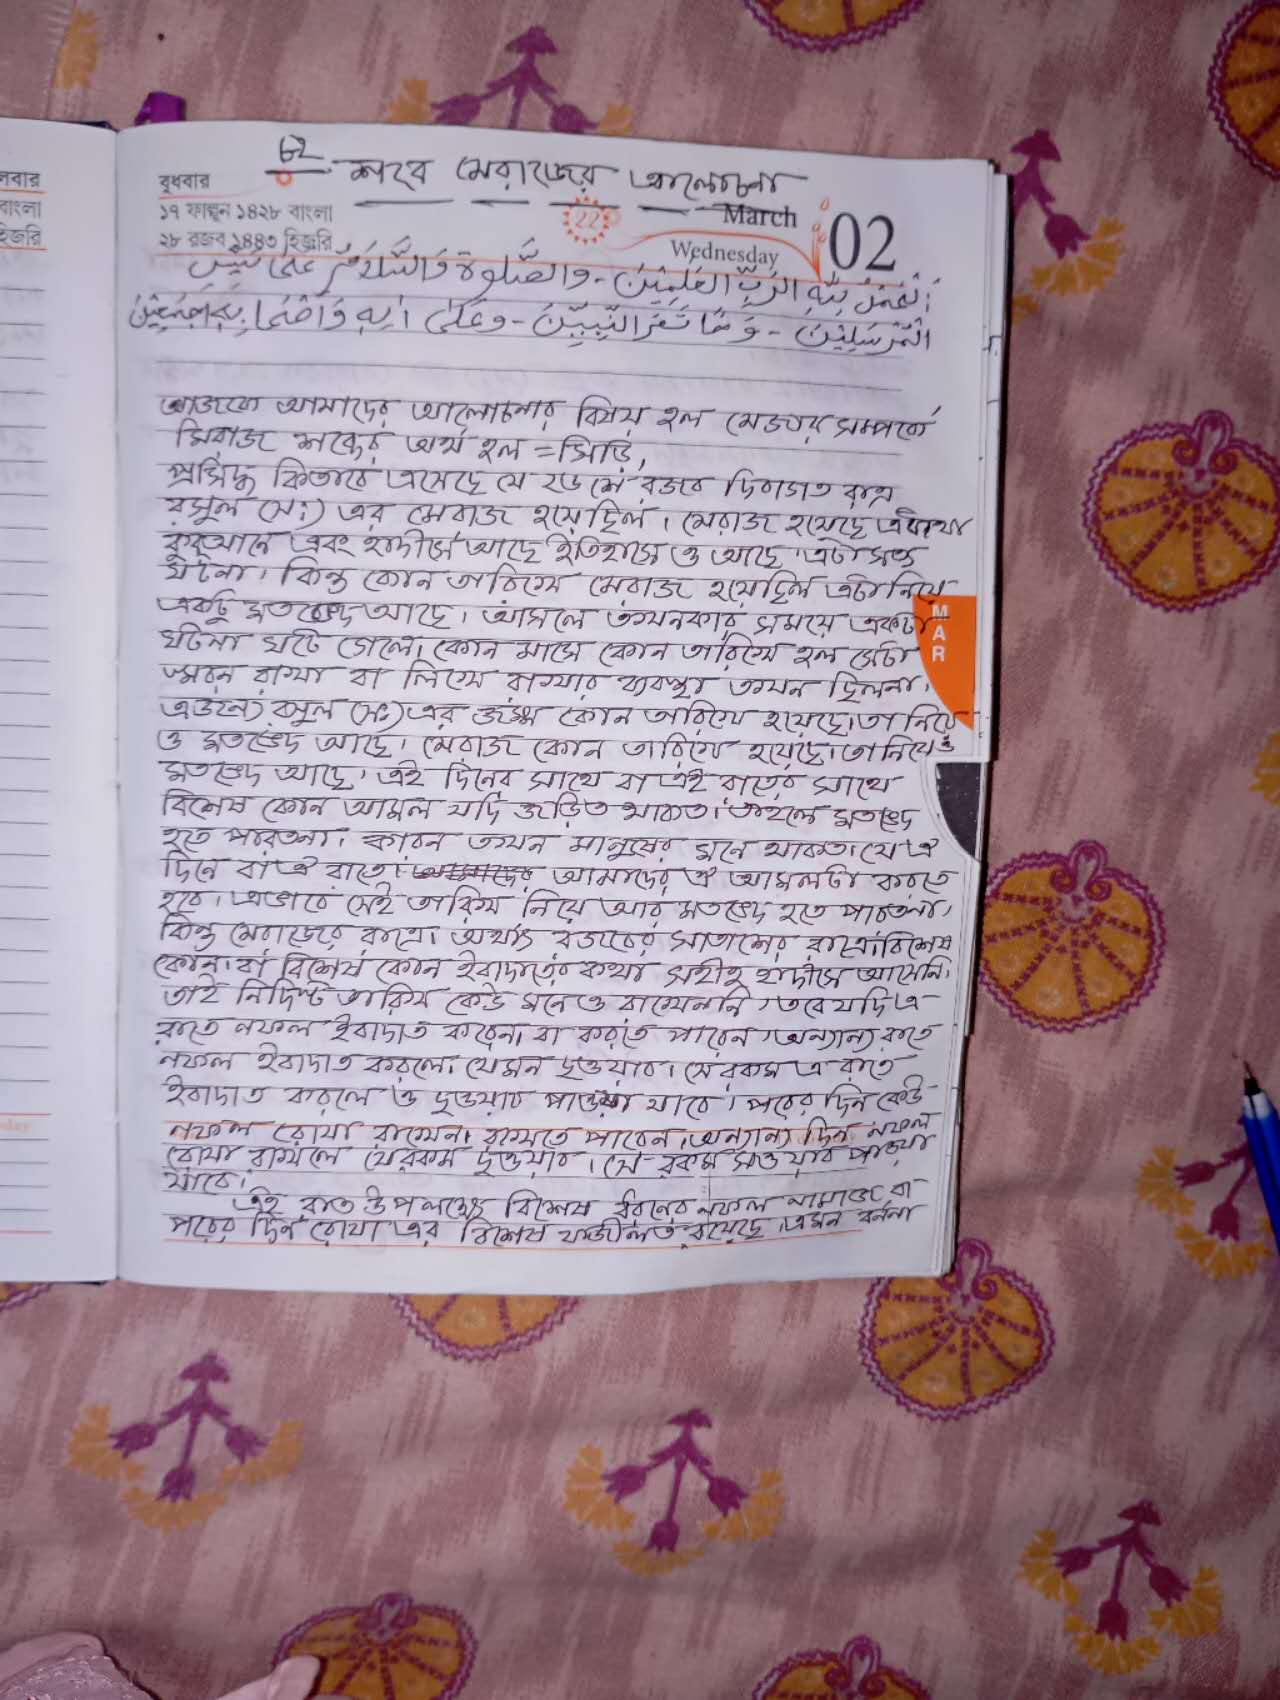 ৮২
শবে মেরাজের আলোচনা
লবার
বাংলা
হিজরি
বুধবার
১৭ ফাল্গুন ১৪২৮ বাংলা
২৮ রজব ১৪৪৩ হিজরি
22
March
Wednesday
02
اَلْحَمْدُ لِلّٰهِ الرَبِّ الْعٰلَمِيْنَ - والصَّلوة وَالسَّلَامُ عَلىٰ سَيِّدِ
الْمُرْسَلِيْنَ - وَخَاتَمَ النَّبِيِّيْنَ - وَعَلىٰ اٰلِهٖ وَاَصْحَابِهٖ اَجْمَعِيْنَ
আজকে আমাদের আলোচনার বিষয় হল মেরাজ সম্পর্কে
মিরাজ শব্দের অর্থ হল = সিড়ি,
প্রসিদ্ধ কিতাবে এসেছে যে ২৬ শে রজব দিবাগত রাত্র
রসূল (স:) এর মেরাজ হয়েছিল। মেরাজ হয়েছে একথা
কুরআনে এবং হাদীসে আছে ইতিহাসে ও আছে। এটা সত্য
ঘটনা। কিন্তু কোন তারিখে মেরাজ হয়েছিল এটা নিয়ে
একটু মতভেদ আছে। আসলে তখনকার সময়ে একটা
ঘটনা ঘটে গেলে। কোন মাসে কোন তারিখে হল সেটা
স্মরন রাখা বা লিখে রাখার ব্যবস্থা তখন ছিলনা।
এজন্য রসূল (স:) এর জন্ম কোন তারিখে হয়েছে। তা নিয়ে
ও মতভেদ আছে। মেরাজ কোন তারিখে হয়েছে। তা নিয়েও
মতভেদ আছে। এই দিনের সাথে বা এই রাতের সাথে
বিশেষ কোন আমল যদি জড়িত থাকত। তাহলে মতভেদ
হতে পারতনা। কারন তখন মানুষের মনে থাকত। যে ঐ
দিনে বা ঐ রাতে। আমাদের ঐ আমলটা করতে
হবে। এভাবে সেই তারিখ নিয়ে আর মতভেদ হতে পারতনা।
কিন্তু মেরাজের রাত্রে। অর্থাৎ রজবের সাতাশের রাত্রে। বিশেষ
কোন। বা বিশেষ কোন ইবাদাতের কথা সহীহ হাদীসে আসেনি।
তাই নির্দিষ্ট তারিখ কেউ মনেও রাখেননি। তবে যদি এ
রাতে নফল ইবাদাত করেন। বা করতে পারেন। অন্যান্য রাতে
নফল ইবাদাত করলে। যেমন ছওয়াব। সে রকম এ রাতে
ইবাদাত করলে ও ছওয়াব পাওয়া যাবে। পরের দিন কেউ
নফল রোযা রাখেন। রাখতে পারেন। অন্যান্য দিন নফল
রোযা রাখলে যে রকম ছওয়াব। সে রকম সওয়াব পাওয়া
যাবে।
এই রাত উপলক্ষে বিশেষ ধরনের নফল নামাজ বা
পরের দিন রোযা এর বিশেষ ফজীলত রয়েছে। এমন বর্ননা
M
A
R